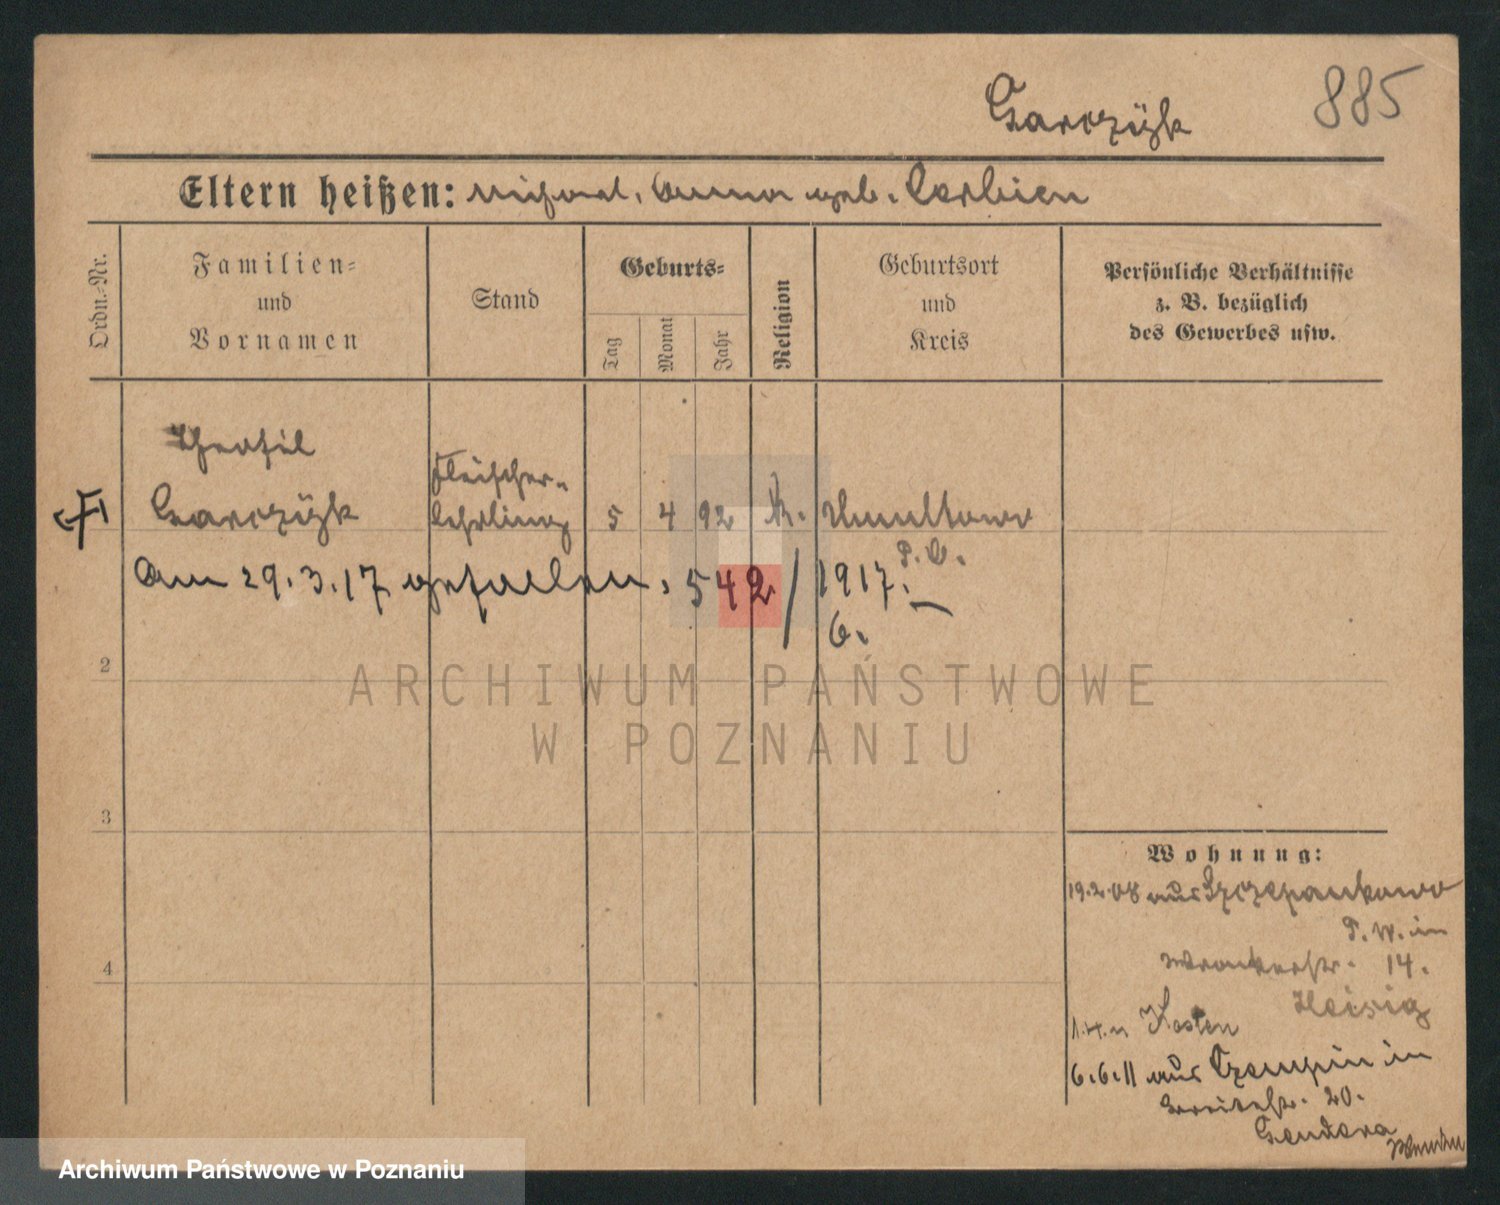 Garczÿk
885
Eltern heißen: Michael, Anna geb. Cerbien
Ordn.-Nr.
Familien-
und
Vornamen
Stand
Geburts-
Tag
Monat
Jahr
Religion
Geburtsort
und
Kreis
Persönliche Verhältnisse
z. B. bezüglich
des Gewerbes usw.
Theofil
Garczÿk
Fleischer-
lehrling
5 4 92 k. Umultowo
P. O.
Am 29.3.17 gefallen. 542/1917.
6.
2
3
4
Wohnung:
19.2.08 aus Szczepankowo
P. W. in
Wronkerstr. 14.
Heisig
Kosten
6.6.11 aus Czempin in
Breitestr. 20.
Gendera
ARCHIWUM PAŃSTWOWE
W POZNANIU
Archiwum Państwowe w Poznaniu